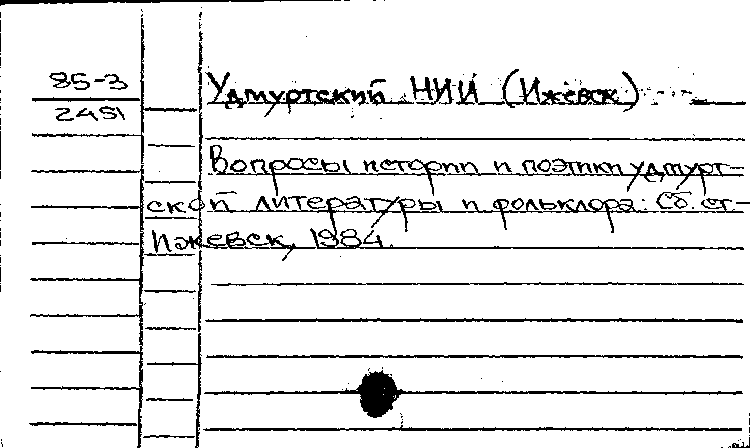 85-3
2451
Удмуртский НИИ (Ижевск)
Вопросы истории и поэтики удмурт-
ской литературы и фольклора: Сб. ст-
Ижевск, 1984.